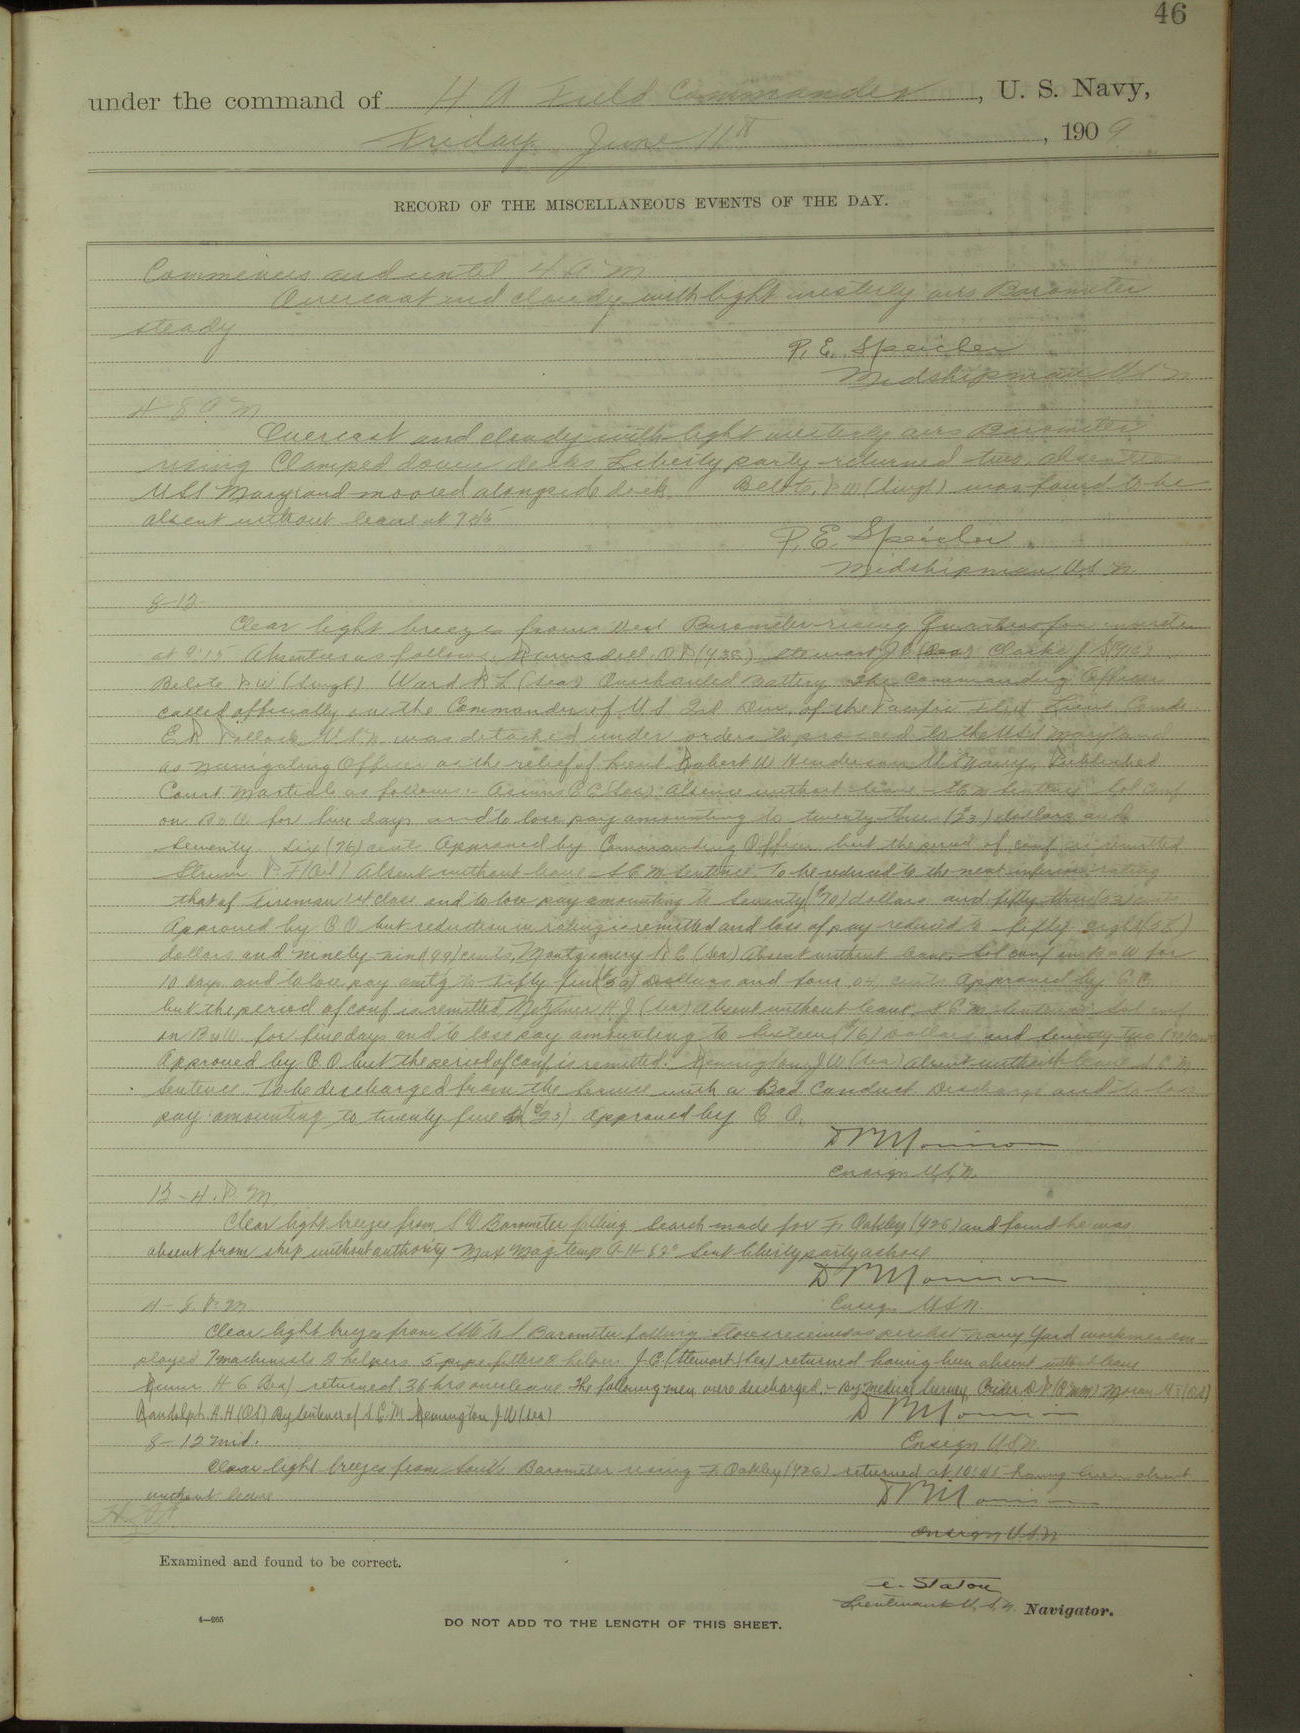 46
under the command of H A Field Commander, U. S. Navy,
Friday June 11th, 1909
RECORD OF THE MISCELLANEOUS EVENTS OF THE DAY.
Commences and until 4 A M
Overcast and cloudy with light westerly airs Barometer
steady
P. E. Speicher
Midshipman U S N
4-8 A M
Overcast and cloudy with light westerly airs Barometer
rising Clamped down decks Liberty party returned two absentees
USS Maryland moored alongside dock. Belote, P W (Sergt) was found to be
absent without leave at 7:45
P. E. Speicher
Midshipman U.S.N.
8-12
Clear light breezes from West Barometer rising Quarters for muster
at 9:15 Absentees as follows Stewart J C (Sea) Clarke J S
Belote P W (Sergt) Ward R L (Sea) Overhauled Battery The Commanding Officer
called officially on the Commander of U S 2d Div. of the Pacific Fleet Lieut. Comdr
E R Pollock U S N was detached under orders to proceed to the USS Maryland
as navigating Officer as the relief of Lieut Robert W Henderson U S Navy. Published
Court Martials as follows:- (Sea) Absence without leave - S C M Sentence Sol Conf
on B & W for five days and to lose pay amounting to twenty three (23) dollars and
seventy six (76) cents Approved by Commanding Officer but the period of conf is remitted
P. F (Oil) Absent without leave S C M Sentence To be reduced to the next inferior rating
that of Fireman 1st class and to lose pay amounting to Seventy ($70) dollars and fifty three (53) cents
Approved by C O but reduction in rating is remitted and loss of pay reduced to fifty eight (58)
dollars and ninety nine (99) cents, Montgomery R C (Sea) Absent without leave Sol conf on B & W for
10 days and to lose pay amtg to fifty five ($55) Dollars and four 04 cents Approved by C O
but the period of conf is remitted H J (Sea) Absent without leave S C M Sentence Sol conf
on B & W for five days and to lose pay amounting to Sixteen ($16) Dollars and seventy two (72) cents
Approved by C O but the period of conf is remitted. Remington J W (Sea) absent without leave S C M
Sentence To be discharged from the Service with a Bad Conduct Discharge and to lose
pay amounting to twenty five ($25) Approved by C O.
D M Morrison
Ensign U.S.N.
12-4 P. M.
Clear light breezes from S W Barometer falling Search made for F. Oakley (426) and found he was
absent from ship without authority Max Mag temp A H 82° Sent liberty party ashore
D M Morrison
Ensign U S N.
4-8 P. M
Clear light breezes from Barometer falling Stores received as per list Navy Yard workmen em-
ployed 7 machinists 8 helpers 5 pipefitters 2 helpers J. C. Stewart (Sea) returned having been absent without leave
H G (Sea) returned 36 hrs overleave The following men were discharged:- By Medical Survey
Randolph A. H (OS) By Sentence of S C M Remington J W (Sea)
D M Morrison
8-12 mid.
Ensign U S N.
Clear light breezes from South Barometer rising F Oakley (426) returned at 10:45 having been absent
without leave
D M Morrison
Ensign U.S.N
Examined and found to be correct.
Staton
Lieutenant U. S. N. Navigator.
4—265
DO NOT ADD TO THE LENGTH OF THIS SHEET.